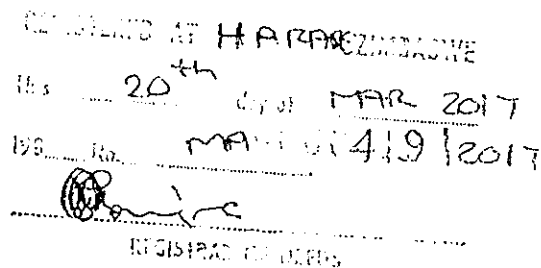 REGISTERED AT HARARE ZIMBABWE
This 20th day of MAR 2017
198 No. 2017
REGISTRAR OF DEEDS